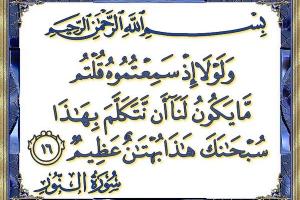 بِسْمِ اللَّهِ الرَّحْمَٰنِ الرَّحِيمِ
وَلَوْلَا إِذْ سَمِعْتُمُوهُ قُلْتُم
مَّا يَكُونُ لَنَا أَن نَّتَكَلَّمَ بِهَٰذَا
سُبْحَٰنَكَ هَٰذَا بُهْتَٰنٌ عَظِيمٌ ١٦
سُورَةُ النُّورِ